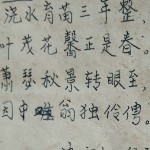 浇水育苗三年整
叶茂花馨正是春。
萧瑟秋景转眼至,
园中唯翁独伶俜。